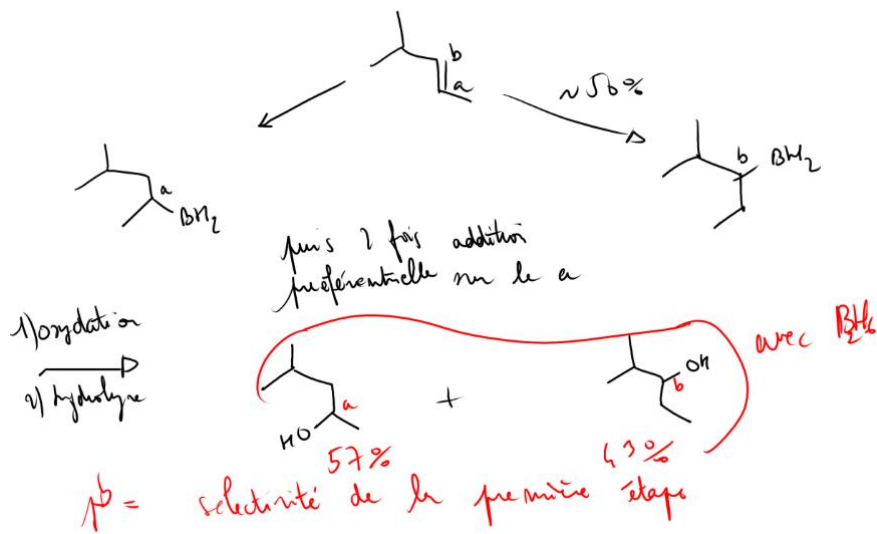 b
a
~ 50%
a
BH2
b BH2
puis 2 fois addition
préférentielle sur le a
1) oxydation
2) hydrolyse
avec B2H6
a
HO
+
OH
b
57%
43%
pb = sélectivité de la première étape